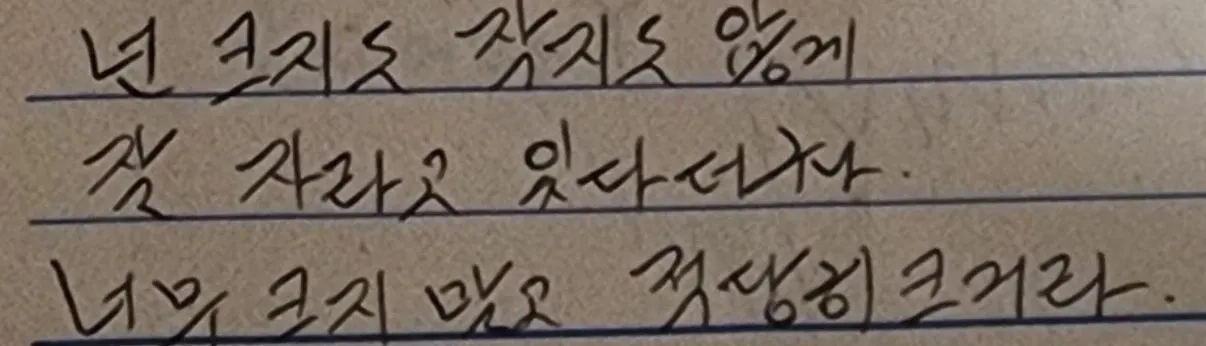 넌 크지도 작지도 않게
잘 자라고 있다더구나.
너무 크지 말고 적당히 크거라.